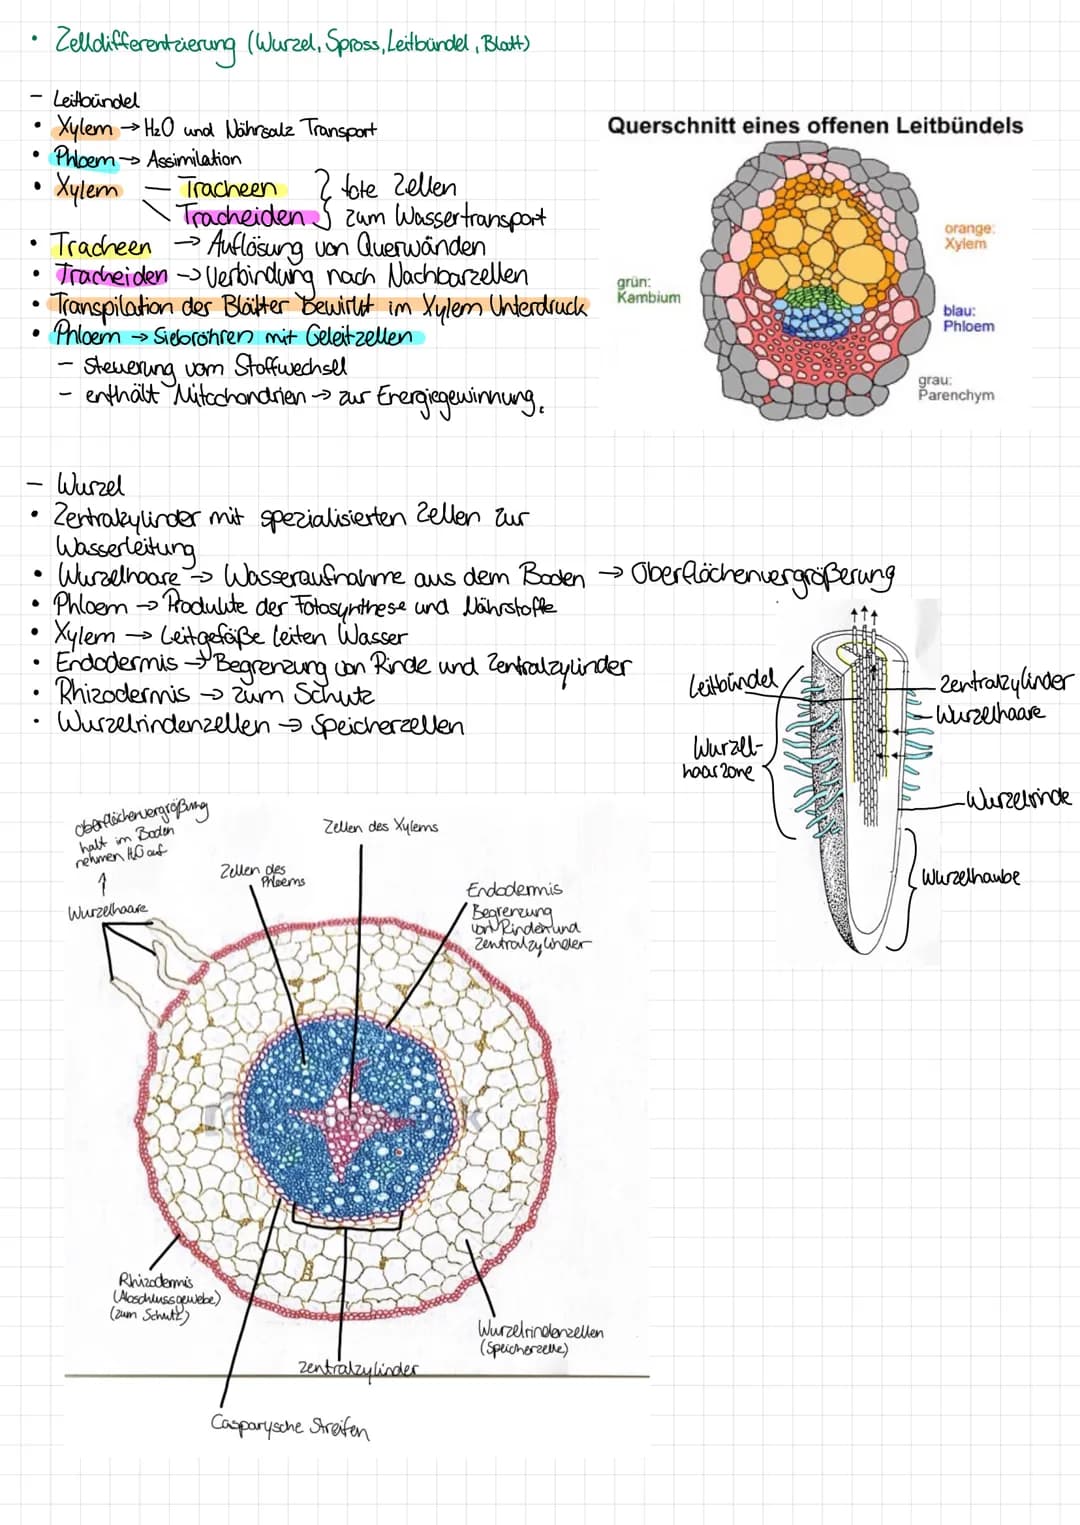 • Zelldifferentzierung (Wurzel, Spross, Leitbündel, Blatt)
– Leitbündel
• Xylem → H₂O und Nährsalz Transport
• Phloem → Assimilation
• Xylem — Tracheen } tote Zellen
Tracheiden } zum Wassertransport
• Tracheen → Auflösung von Querwänden
• Tracheiden → Verbindung nach Nachbarzellen
• Transpilation der Blätter bewirkt im Xylem Unterdruck
• Phloem → Siebröhren mit Geleitzellen
– Steuerung vom Stoffwechsel
– enthält Mitochondrien → zur Energiegewinnung.
Querschnitt eines offenen Leitbündels
orange:
Xylem
grün:
Kambium
blau:
Phloem
grau:
Parenchym
– Wurzel
• Zentralzylinder mit spezialisierten Zellen zur
Wasserleitung
• Wurzelhaare → Wasseraufnahme aus dem Boden → Oberflächenvergrößerung
• Phloem → Produkte der Fotosynthese und Nährstoffe
• Xylem → Leitgefäße leiten Wasser
• Endodermis → Begrenzung von Rinde und Zentralzylinder
• Rhizodermis → zum Schutz
• Wurzelrindenzellen → Speicherzellen
Leitbündel
Zentralzylinder
Wurzelhaare
Wurzel-
haarzone
Wurzelrinde
Wurzelhaube
Oberflächenvergrößung
halt im Boden
nehmen H₂O auf
↑
Wurzelhaare
Zellen des
Phloems
Zellen des Xylems
Endodermis
Begrenzung
von Rinden und
Zentralzylinder
Rhizodermis
(Abschlussgewebe)
(zum Schutz)
Wurzelrindenzellen
(Speicherzelle)
Zentralzylinder
Casparysche Streifen